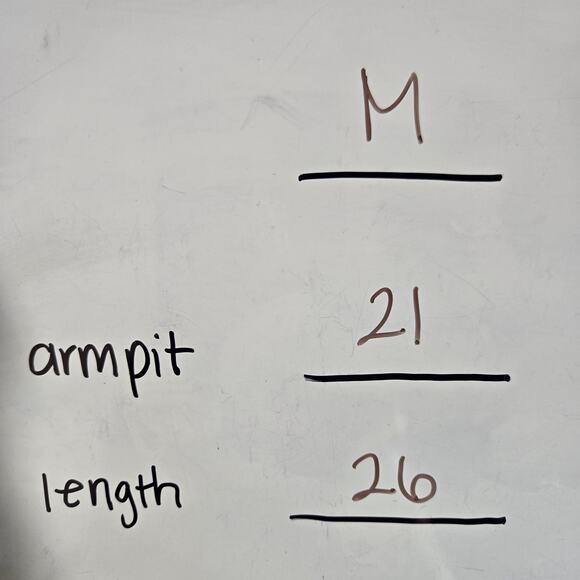 M
armpit 21
length 26